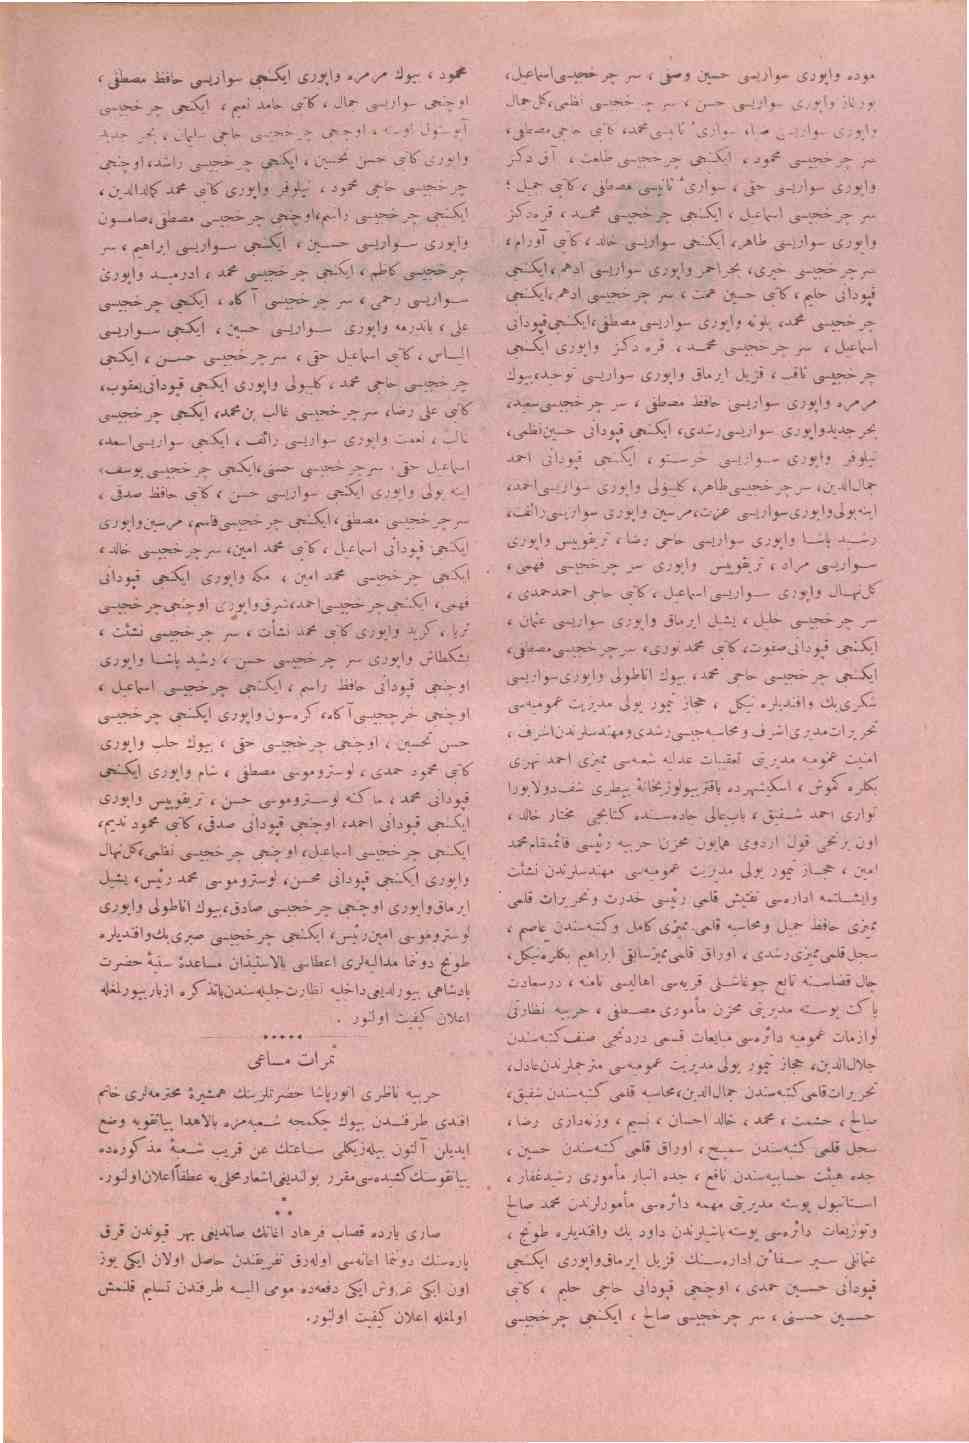 موده واپوری سواریسی حسین وصفی ، سر چرخجیسی اسماعیل،
بورناز واپوری سواریسی حسن ، سر چرخجیسی نظمی، کل جمال
واپوری سواریسی ضیا، سواریء ثانیسی محمد، کاتبی حاجی مصطفی،
سر چرخجیسی محمود ، ایکنجی چرخجیسی طلعت ، آق دکز
واپوری سواریسی حقی ، سواریء ثانیسی مصطفی ، کاتبی جمیل ؛
سر چرخجیسی اسماعیل ، ایکنجی چرخجیسی محمد ، قره دکز
واپوری سواریسی طاهر، ایکنجی سواریسی خالد ، کاتبی آورام ،
سر چرخجیسی خیری، بحر احمر واپوری سواریسی ادهم ، ایکنجی
قپودانی حلیم ، کاتبی حسین همت ، سر چرخجیسی ادهم ، ایکنجی
چرخجیسی محمد، پلونه واپوری سواریسی مصطفی، ایکنجی قپودانی
اسماعیل ، سر چرخجیسی محمد ، قره دکز واپوری ایکنجی
چرخجیسی ثاقب ، قزیل ایرماق واپوری سواریسی توحید، بیوك
مرمره واپوری سواریسی حافظ مصطفی ، سر چرخجیسی سعید،
بحر جدید واپوری سواریسی رشدی، ایکنجی قپودانی حسین نظمی،
نیلوفر واپوری سواریسی خرستو ، ایکنجی قپودانی احمد
جمال الدین، سر چرخجیسی طاهر، کلیبولی واپوری سواریسی احمد،
اینه بولی واپوری سواریسی عزت، مرسین واپوری سواریسی رائف،
رشید پاشا واپوری سواریسی حاجی رضا ، تریقوپیس واپوری
سواریسی مراد ، تریقوپیس واپوری سر چرخجیسی فهمی ،
کل نهال واپوری سواریسی اسماعیل ، کاتبی حاجی احمد حمدی ،
سر چرخجیسی خلیل ، یشیل ایرماق واپوری سواریسی عثمان ،
ایکنجی قپودانی صفوت، کاتبی محمد نوری، سر چرخجیسی مصطفی،
ایکنجی چرخجیسی حاجی محمد، بیوك اناطولی واپوری سواریسی
شکری بك وافندیلره نیکل ، حجاز تیمور یولی مدیریت عمومیه سی
تحریرات مدیری اشرف ومحاسبه جیسی رشدی ومهندسلرندن اشرف ،
امنیت عمومیه مدیریتی تعقیبات عدلیه شعبه سی ممیزی احمد نهری
بکلره کموش ، اسکیشهرده باقتریولوژیخانهٔ بیطری شف دولابورا
تواری احمد شفیق ، باب عالی جاده سنده کتابجی مختار خالد ،
اون برنجی قول اردوی همایون مخزن حربیه رئیسی قائممقام محمد
امین ، حجاز تیمور یولی مدیریت عمومیه سی مهندسلرندن نشئت
وایشلتمه اداره سی تفتیش قلمی رئیسی خدرت وتحریرات قلمی
ممیزی حافظ جمیل ومحاسبه قلمی ممیزی کامل وکتبه سندن عاصم ،
سجل قلمی ممیزی رشدی ، اوراق قلمی ممیز سابقی ابراهیم بکلره نیکل،
قضاسنه تابع قریه سی اهالیسی نامنه ، درسعادت
پاکت پوسته مدیریتی مخزن مأموری مصطفی ، حربیه نظارتی
لوازمات عمومیه دائره سی مبایعات قسمی دردنجی صنف کتبه سندن
جلال الدین، حجاز تیمور یولی مدیریت عمومیه سی مترجملرندن عادل،
تحریرات قلمی کتبه سندن جمال الدین، محاسبه قلمی کتبه سندن شفیق،
صالح ، حشمت ، محمد ، خالد احسان ، نسیم ، وزنه داری رضا ،
سجل قلمی کتبه سندن سمیح ، اوراق قلمی کتبه سندن حسین ،
جده هیئت حسابیه سندن نافع ، جده انبار مأموری رشید غفار ،
استانبول پوسته مدیریتی مهمه دائره سی مأمورلرندن محمد صالح
وتوزیعات دائره سی پوسته باشیلرندن داود بك وافندیلره طونج ،
عثمانلی سیر سفائن اداره سنك قزیل ایرماق واپوری ایکنجی
قپودانی حسین حمدی ، اوچنجی قپودانی حاجی حلیم ، کاتبی
حسین حسنی ، سر چرخجیسی صالح ، ایکنجی چرخجیسی
محمود ، بیوك مرمره واپوری ایکنجی سواریسی حافظ مصطفی ،
اوچنجی سواریسی جمال ، کاتبی حامد نعیم ، ایکنجی چرخجیسی
آپوستول اوسته ، اوچنجی چرخجیسی حاجی سلیمان ، بحر جدید
واپوری کاتبی حسن تحسین ، ایکنجی چرخجیسی راشد، اوچنجی
چرخجیسی حاجی محمود ، نیلوفر واپوری کاتبی محمد کمال الدین ،
ایکنجی چرخجیسی راسم، اوچنجی چرخجیسی مصطفی، صامسون
واپوری سواریسی حسین ، ایکنجی سواریسی ابراهیم ، سر
چرخجیسی کاظم ، ایکنجی چرخجیسی محمد ، ادرمید واپوری
سواریسی رحمی ، سر چرخجیسی آکاه ، ایکنجی چرخجیسی
علی ، باندرمه واپوری سواریسی حسین ، ایکنجی سواریسی
الیاس ، کاتبی اسماعیل حقی ، سر چرخجیسی حسن ، ایکنجی
چرخجیسی حاجی محمد ، کلیبولی واپوری ایکنجی قپودانی یعقوب،
کاتبی علی رضا، سر چرخجیسی غالب بن محمد، ایکنجی چرخجیسی
غالب ، نعمت واپوری سواریسی رائف ، ایکنجی سواریسی اسعد،
اسماعیل حقی، سر چرخجیسی حسنی، ایکنجی چرخجیسی یوسف،
اینه بولی واپوری ایکنجی سواریسی حسن ، کاتبی حافظ صدقی ،
سر چرخجیسی مصطفی، ایکنجی چرخجیسی قاسم، مرسین واپوری
ایکنجی قپودانی اسماعیل ، کاتبی محمد امین، سر چرخجیسی خالد،
ایکنجی چرخجیسی محمد امین ، مکه واپوری ایکنجی قپودانی
فهمی، ایکنجی چرخجیسی احمد، شرق واپوری اوچنجی چرخجیسی
ثریا ، کرید واپوری کاتبی محمد نشأت ، سر چرخجیسی نشئت ،
بشکطاش واپوری سر چرخجیسی حسن ، رشید پاشا واپوری
اوچنجی قپودانی حافظ راسم ، ایکنجی چرخجیسی اسماعیل ،
اوچنجی خرچجیسی آکاه، کره سون واپوری ایکنجی چرخجیسی
حسن تحسین ، اوچنجی چرخجیسی حقی ، بیوك حلب واپوری
کاتبی محمود حمدی ، لوسترومو سی مصطفی ، شام واپوری ایکنجی
قپودانی محمد ، ماکنه لوسترومو سی حسن ، تریقوپیس واپوری
ایکنجی قپودانی احمد، اوچنجی قپودانی صدقی، کاتبی محمود ندیم،
ایکنجی چرخجیسی اسماعیل، اوچنجی چرخجیسی نظمی، کل نهال
واپوری ایکنجی قپودانی محسن، لوسترومو سی محمد رئیس، یشیل
ایرماق واپوری اوچنجی چرخجیسی صادق، بیوك اناطولی واپوری
لوسترومو سی امین رئیس، ایکنجی چرخجیسی صبری بك وافندیلره
طونج دوننما مدالیه لری اعطاسی بالاستیذان مساعدهٔ سنیهٔ حضرت
پادشاهی بیورلدیغی داخلیه نظارت جلیله سندن با تذکره ازبار بیورلمغله
اعلان کیفیت اولنور .
ثمرات مساعی
حربیه ناظری انور پاشا حضرتلرینك همشیرهٔ محترمه لری خانم
افندی طرفندن بیوك چکمجه شعبه مزه بالاهدا پیاتقویه وضع
ایدیلن آلتون بیله زیکلی ساعتك عن قریب شعبهٔ مذکوره ده
پیاتقوسنك کشیده سی مقرر بولندیغی اشعار محلی یه عطفاً اعلان اولنور.
صاری یارده قصاب فرهاد اغانك صاتدیغی بهر قیوندن قرق
پاره سنك دوننما اعانه سی اوله رق تفریقندن حاصل اولان ایکی یوز
اون ایکی غروش ایکی دفعه ده مومی الیه طرفندن تسلیم قلنمش
اولمغله اعلان کیفیت اولنور.